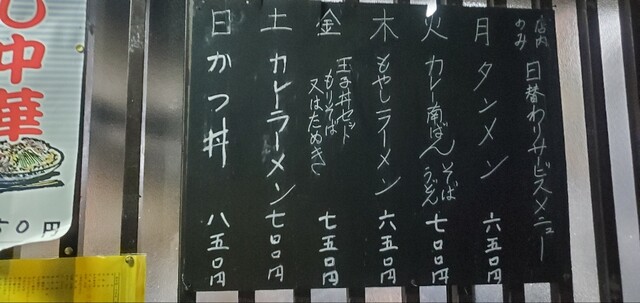 店内
のみ
日替わりサービスメニュー
月 タンメン 六五〇円
火 カレー南ばん そば
うどん 七〇〇円
木 もやしラーメン 六五〇円
金 玉子丼セット
もりそば
又はたぬき 七五〇円
土 カレーラーメン 七〇〇円
日 かつ丼 八五〇円
中華
50円